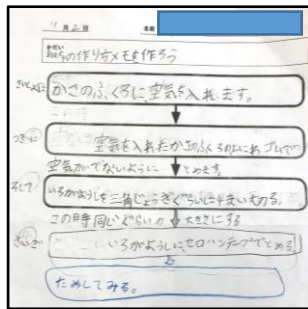 月 日 名前
かだい おもちゃの作り方メモを作ろう
さいしょに かさのふくろに空気を入れます。
つぎに 空気を入れたかさのふくろの に ゴムで
空気がでないように とめます。
そして いろがようしを三角じょうぎぐらいに まい切る。
この時同じぐらいの 大きさにする
さいごに いろがようしにセロハンテープでとめる。
ためしてみる。